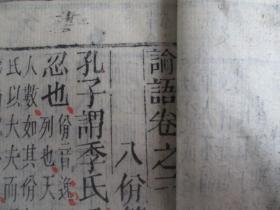 論語卷之
八佾第
孔子謂季氏
忍也
佾音逸
列也天
人數如其佾
氏以大夫而